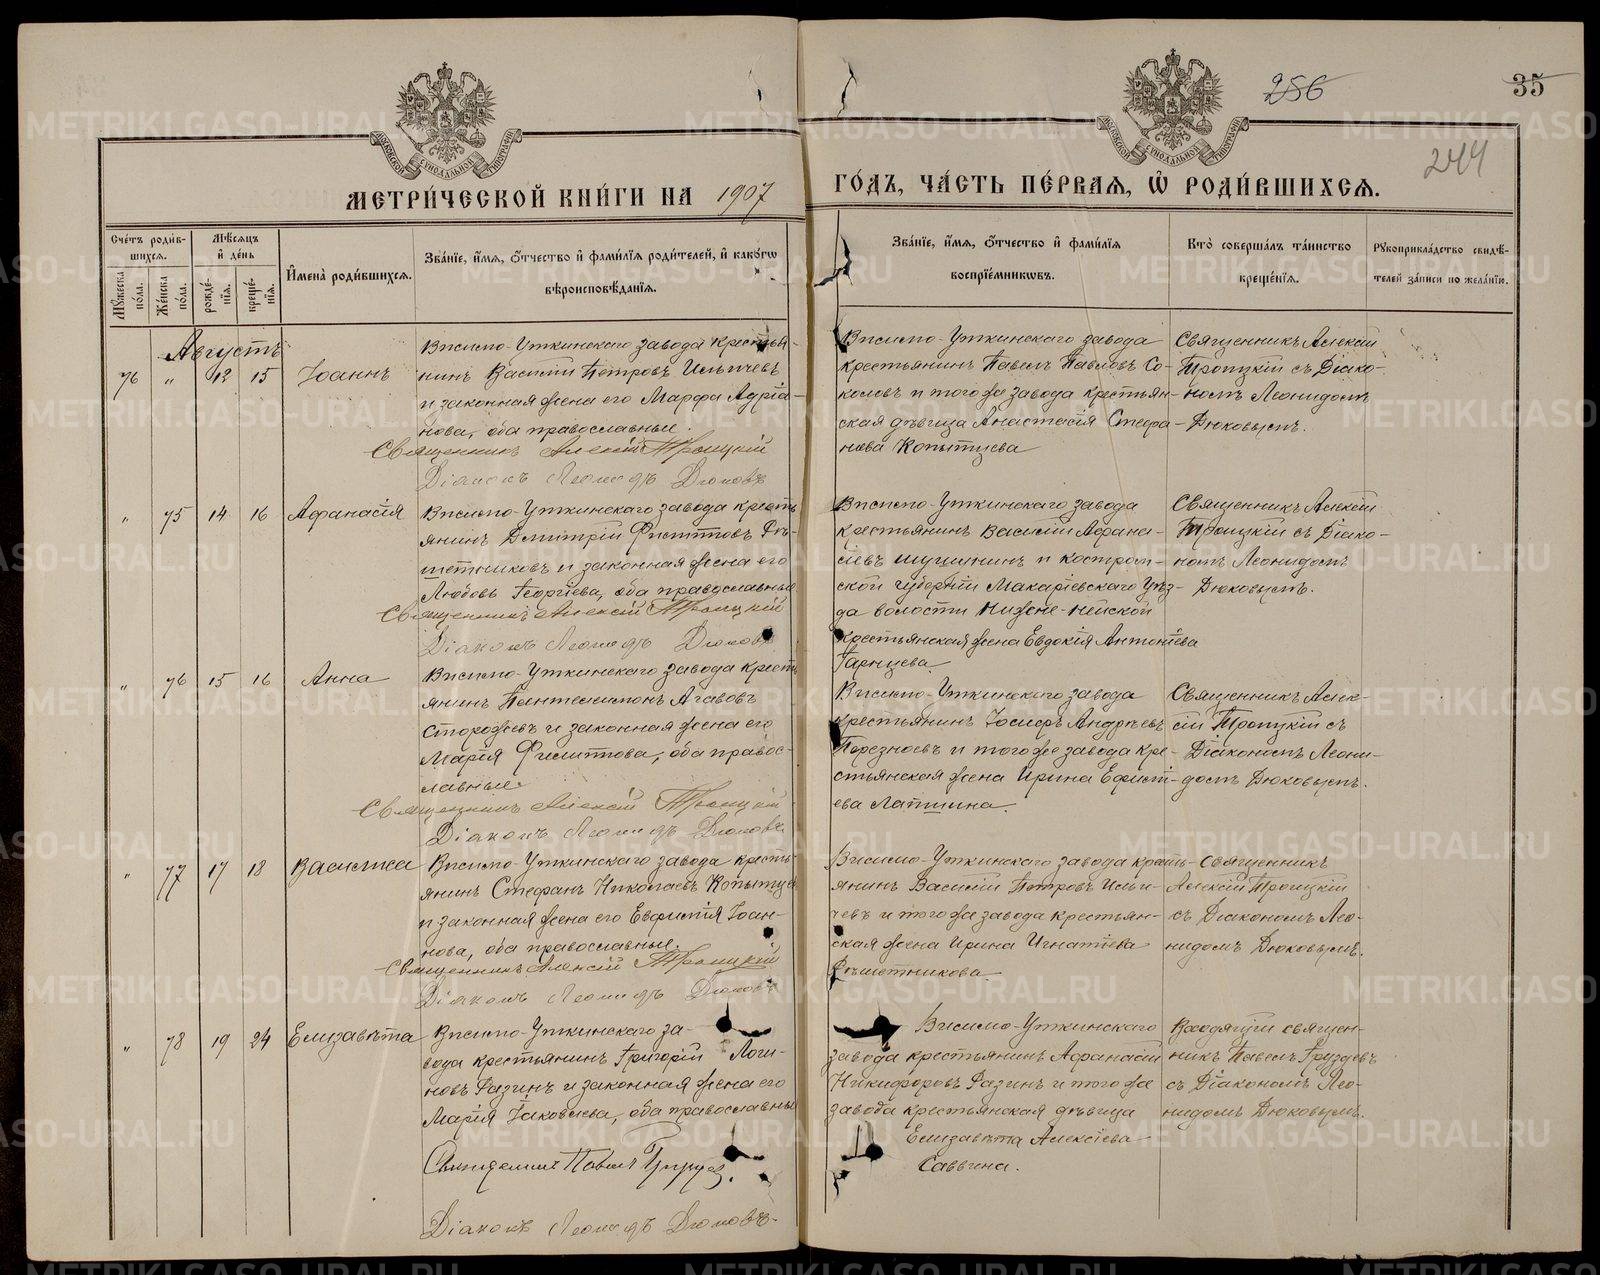 256
35
244
МЕТРИ́ЧЕСКОЙ КНИ́ГИ НА 1907
ГО́ДЪ, ЧА́СТЬ ПЕ́РВАѦ, Ѽ РОДИ́ВШИХСѦ.
Сче́тъ роди́в-
шихсѧ.
Мꙋ́жеска по́ла.
Же́нска по́ла.
Мѣ́сѧцъ и҆ де́нь
рожде́-
нїѧ.
креще́-
нїѧ.
И҆мена̀ роди́вшихсѧ.
Зва́нїе, и҆́мѧ, ѻ҆́тчество и҆ фами́лїѧ роди́телей, и҆ како́гѡ
вѣроисповѣ́данїѧ.
Зва́нїе, и҆́мѧ, ѻ҆́тчество и҆ фами́лїѧ
воспрїе́мникѡвъ.
Кто̀ соверша́лъ та́инство
креще́нїѧ.
Рꙋкоприкла́дство свидѣ́-
телей за́писи по жела́нїю.
Августъ
76 " 12 15 Іоаннъ
Висимо-Уткинскаго завода крестья-
нинъ Василій Петровъ Ильичевъ
и законная жена его Марфа Адріа-
нова, оба православные.
Священникъ Алексій Троицкій
Діаконъ Леонидъ Дюковъ
Висимо-Уткинскаго завода
крестьянинъ Павелъ Павловъ Со-
коловъ и того же завода крестьян-
ская дѣвица Анастасія Стефа-
нова Копытцева
Священникъ Алексій
Троицкій съ Діако-
номъ Леонидомъ
Дюковымъ.
" 75 14 16 Афанасія
Висимо-Уткинскаго завода кресть
янинъ Дмитрій Филипповъ Рѣ-
шетниковъ и законная жена его
Любовь Георгіева, оба православные
Священникъ Алексій Троицкій
Діаконъ Леонидъ Дюковъ
Висимо-Уткинскаго завода
крестьянинъ Василій Афана-
сіевъ и Костром-
ской губерніи Макаріевскаго уѣз-
да волости Нижне-Нейской
крестьянская жена Евдокія Антоніева
Гарнцева
Священникъ Алексій
Троицкій съ Діако-
номъ Леонидомъ
Дюковымъ.
" 76 15 16 Анна
Висимо-Уткинскаго завода кресть
янинъ Пантелеимонъ Агавовъ
Сторожевъ и законная жена его
Марія Филиппова, оба правос-
лавные
Священникъ Алексій Троицкій
Діаконъ Леонидъ Дюковъ
Висимо-Уткинскаго завода
крестьянинъ Іосифъ Андреевъ
и того же завода кре-
стьянская жена Ирина
ева Лапшина.
Священникъ Алек-
сій Троицкій съ
Діакономъ Леони-
домъ Дюковымъ.
" 77 17 18 Василиса
Висимо-Уткинскаго завода кресть-
янинъ Стефанъ Николаевъ Копытцев
и законная жена его Евфимія Іоан-
нова, оба православные.
Священникъ Алексій Троицкій
Діаконъ Леонидъ Дюковъ
Висимо-Уткинскаго завода кресть-
янинъ Василій Петровъ Ильи-
чевъ и того же завода крестьян-
ская жена Ирина Игнатіева
Рѣшетникова
Священникъ
Алексій Троицкій
съ Діакономъ Лео-
нидомъ Дюковымъ.
" 78 19 24 Елизавѣта
Висимо-Уткинскаго за-
вода крестьянинъ Григорій Логи-
новъ Разинъ и законная жена его
Марія Іаковлева, оба православные
Священникъ Павелъ Груздев.
Діаконъ Леонидъ Дюковъ.
Висимо-Уткинскаго
завода крестьянинъ Афанасій
Никифоровъ Разинъ и того же
завода крестьянская дѣвица
Елизавѣта Алексіева
Саввина.
священ-
никъ Павелъ Груздевъ
съ Діакономъ Лео-
нидомъ Дюковымъ.
METRIKI.GASO-URAL.RU